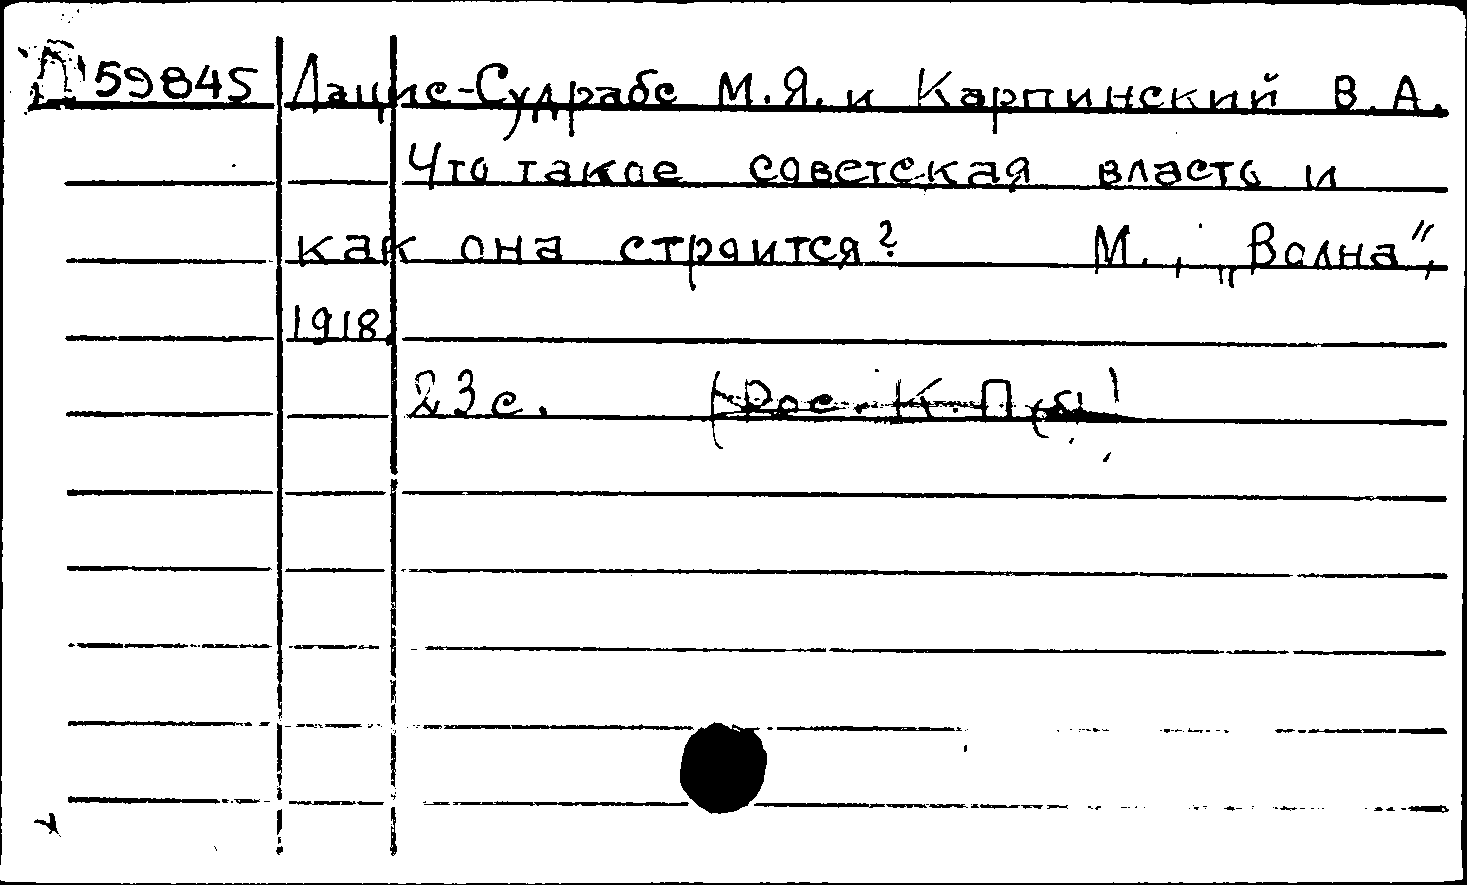 Д 59845 Лацис-Судрабс М.Я. и Карпинский В.А.
Что такое советская власть и
как она строится? М., „Волна",
1918.
23 с. (Рос. К.П.(б)